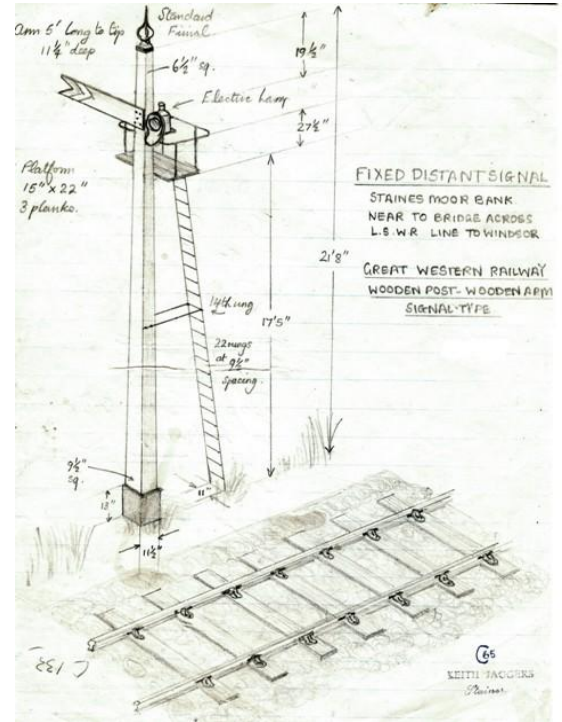 Arm 5' long to tip
11¼" deep
Standard
Finial
6½" sq.
19½"
Electric lamp
27½"
Platform
15" x 22"
3 planks.
FIXED DISTANT SIGNAL
STAINES MOOR BANK.
NEAR TO BRIDGE ACROSS
L.S.W.R LINE TO WINDSOR
21'8"
GREAT WESTERN RAILWAY
WOODEN POST - WOODEN ARM
SIGNAL-TYPE
14th rung
17'5"
22 rungs
at 9½"
spacing.
9½"
sq.
18"
11"
11½"
C 133
65
KEITH JAGGERS
Staines